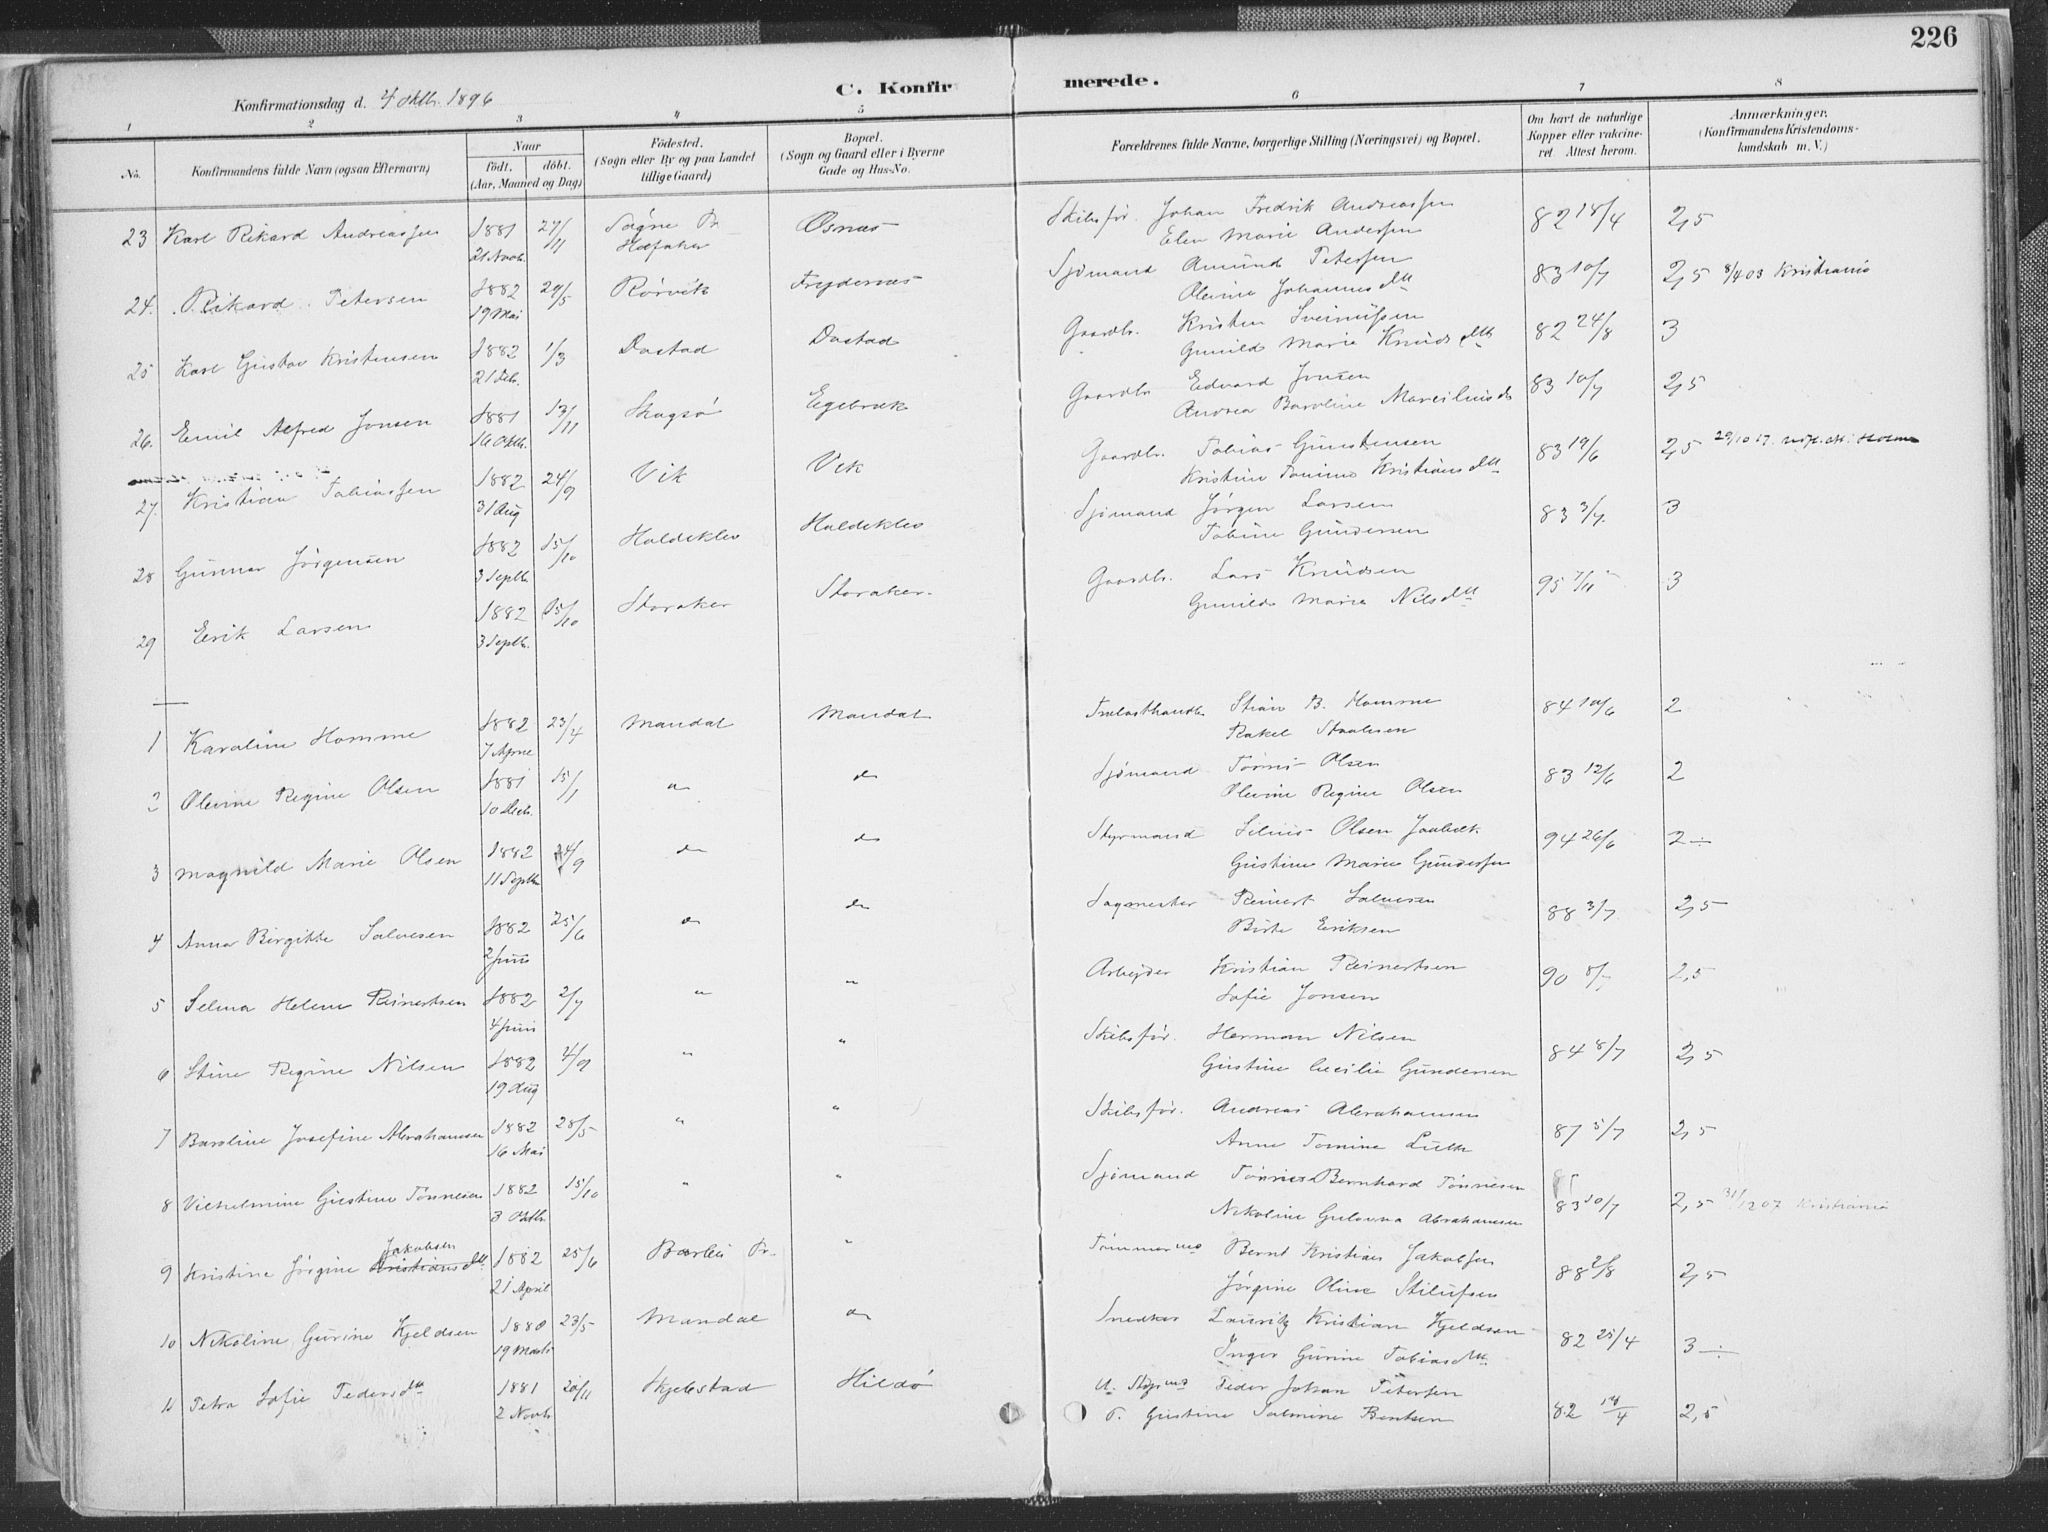 226
C. Konfirmerede.
Konfirmationsdag d. 4 Oktb. 1896
1 2 3 4 5 6 7 8
No.
Konfirmandens fulde Navn (ogsaa Efternavn)
Naar
födt. döbt.
(Aar, Maaned og Dag)
Födested.
(Sogn eller By og paa Landet
tillige Gaard)
Bopæl.
(Sogn og Gaard eller i Byerne
Gade og Hus-No.
Forældrenes fulde Navne, borgerlige Stilling (Næringsvei) og Bopæl.
Om havt de naturlige
Kopper eller vakcine-
ret. Attest herom.
Anmærkninger.
(Konfirmandens Kristendoms-
kundskab m. V.)
23 Karl Rikard Andreassen 1881 21 Novb. 27/11 Søgne Pr. Osnæs Skibsfør. Johan Fredrik Andreassen 82 18/4 2,5
Elen Marie Andersen
24. Rikard Petersen 1882 19 Mai 29/5 Rørvik Frydernæs Sjømand Amund Petersen 83 10/7 2,5 8/4 03 Kristiania
Olevine Johannesdtt
25 Karl Gustav Kristensen 1882 21 Feb. 1/3 Dastad Dastad Gaardbr. Kristen Sveinussen 82 24/8 3
Gunild Marie Knudsdtt
26. Emil Alfred Jonsen 1881 16 Oktb. 13/11 Skogsø Egebræk Gaardbr. Edvard Jonsen 83 10/7 2,5
Andrea Baroline
27. Kristian Tobiassen 1882 31 Aug 24/9 Vik Vik Gaardbr. Tobias Gunstensen 83 19/6 2,5 29/10 17.
Kristine Tomine Kristiansdtt
28 Gunnar Jørgensen 1882 3 Septb. 15/10 Haldeklev Haldeklev Sjømand Jørgen Larsen 83 3/7. 3
Tobine Gundersen
29 Erik Larsen 1882 3 Septb. 15/10 Storaker Storaker. Gaardbr. Lars Knudsen 95 7/11 3
Gunilde Marie Nilsdtt
1 Karoline Homme 1882 7 April 23/4 Mandal Mandal Stian B. Homme 84 10/6 2
Rakel Staalesen
2 Olevine Regine Olsen 1881 10 Decb. 15/1 do do Sjømand Tørris Olsen 83 12/6 2
Olevine Regine Olsen
3 Magnild Marie Olsen 1882 11 Septbr 24/9 do do Styrmand Silius Olsen 94 26/6 2 ÷
Gustine Marie Gundersen
4 Anna Birgitte Salvesen 1882 2 Juni 25/6 do do Sagmester Reinert Salvesen 88 3/7 2,5
Birte Eriksen
5 Selma Helene Reinertsen 1882 4 Juni 2/7 " " Arbeider Kristian Reinertsen 90 8/7 2,5
Sofie Jonsen
6 Stine Regine Nilsen 1882 19 Aug 4/9 " " Skibsfør. Herman Nilsen 84 8/7 2,5
Gustine Cecilie Gundersen
7 Baroline Josefine Abrahamsen 1882 16 Mai 28/5 " " Skibsfør. Andreas Abrahamsen 87 5/7 2,5
Anne Tomine
8 Vilhelmine Gustine Tønnesen 1882 3 Oktb. 15/10 " " Sjømand Tønnes Bernhard Tønnesen 83 10/7 2,5 31/12 07 Kristiania
Nikoline Gulovna Abrahamsen
9 Kristine Jørgine Kristiansdtt Jakobsen 1882 21 April 25/6 Barbu Pr. " Tømmermd Bernt Kristian Jakobsen 88 2/8 2,5
Jørgine Oline
10 Nikoline Gurine Kjeldsen 1880 19 Marts 23/5 Mandal do Snedker Lauritz Kristian Kjeldsen 82 25/4 3 ÷
Inger Gurine Tobiasdtt
11 Petra Sofie Pedersdtt 1881 2 Novb. 20/11 Skjebstad Hildø Peder Johan Petersen 82 18/4 2,5
Gustine Salmine Bentsen